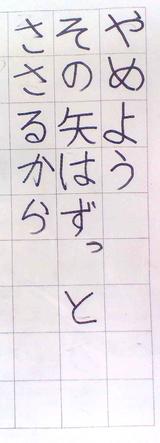 やめよう
その矢はずっと
ささるから